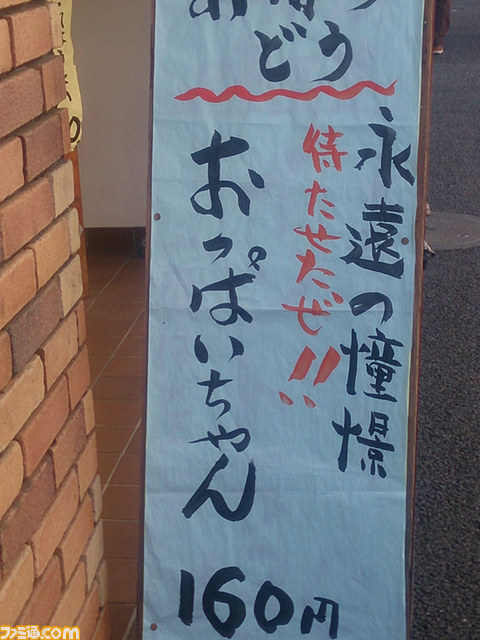 どう
永遠の憧憬
待たせたぜ!!
おっぱいちゃん
160円
ファミ通.com